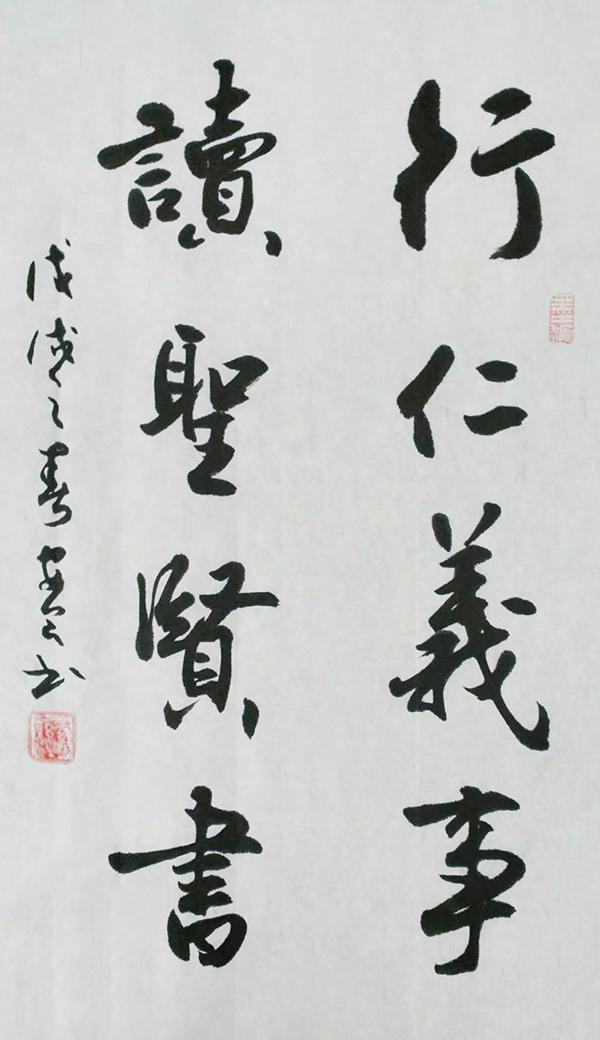 行仁義事
讀聖賢書
戊戌之春